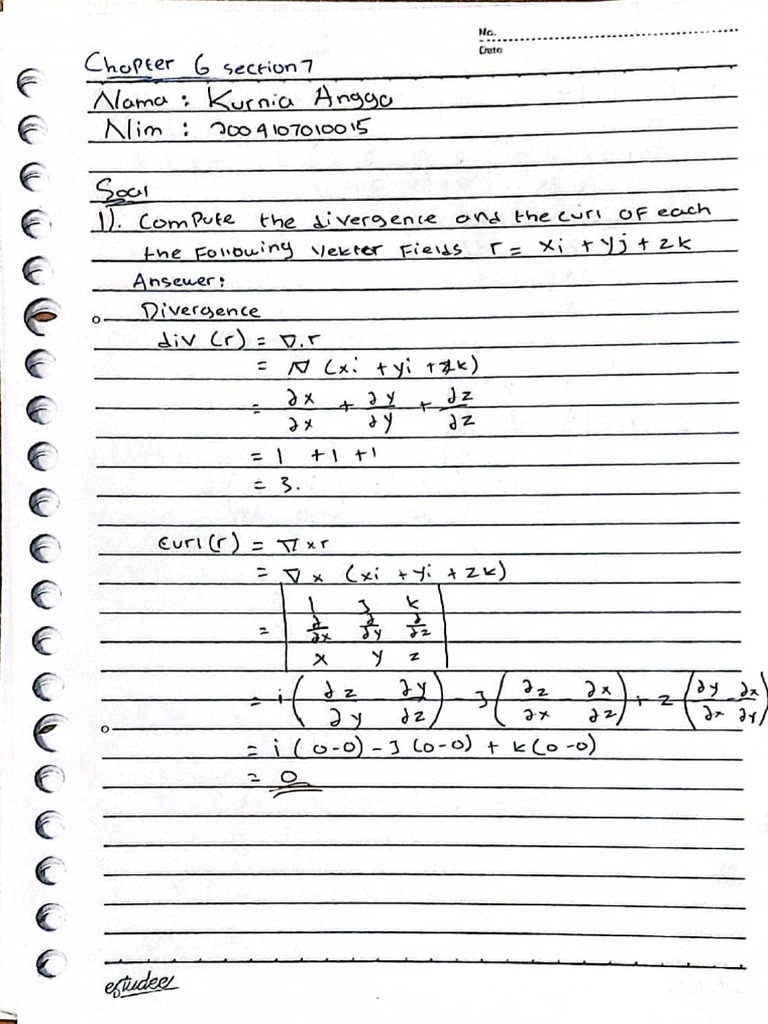 No.
Date
Chapter 6 section 7
Nama : Kurnia Angga
Nim : 2009107010015
Soal
1). Compute the divergence and the curl of each
the Following Vekter Fields r = xi + yj + zk
Ansewer:
Divergence
div (r) = ∇.r
= ∇ (xi + yi + zk)
= ∂x/∂x + ∂y/∂y + ∂z/∂z
= 1 + 1 + 1
= 3.
Curl(r) = ∇ x r
= ∇ x (xi + yi + zk)
= | i j k |
| ∂/∂x ∂/∂y ∂/∂z |
| x y z |
= i (∂z/∂y - ∂y/∂z) - J (∂z/∂x - ∂x/∂z) + z (∂y/∂x - ∂x/∂y)
= i (0-0) - J (0-0) + k (0-0)
= 0
estudee